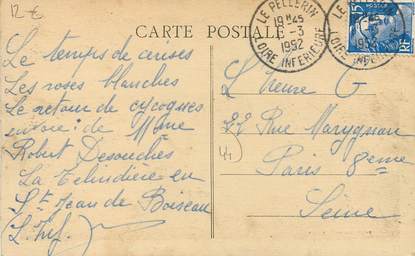 12 €
CARTE POSTALE
LE PELLERIN
19H45
6-3
1952
LOIRE INFERIEURE
Le temps de cerises
Les roses blanches
Le retour de cycognes
envoi : de Mme
Robert Desouches
La Telindière en
St Jean de Boiseau
(L. Inf.)
L'Heure G
22 Rue Marignan
Paris 8eme
Seine